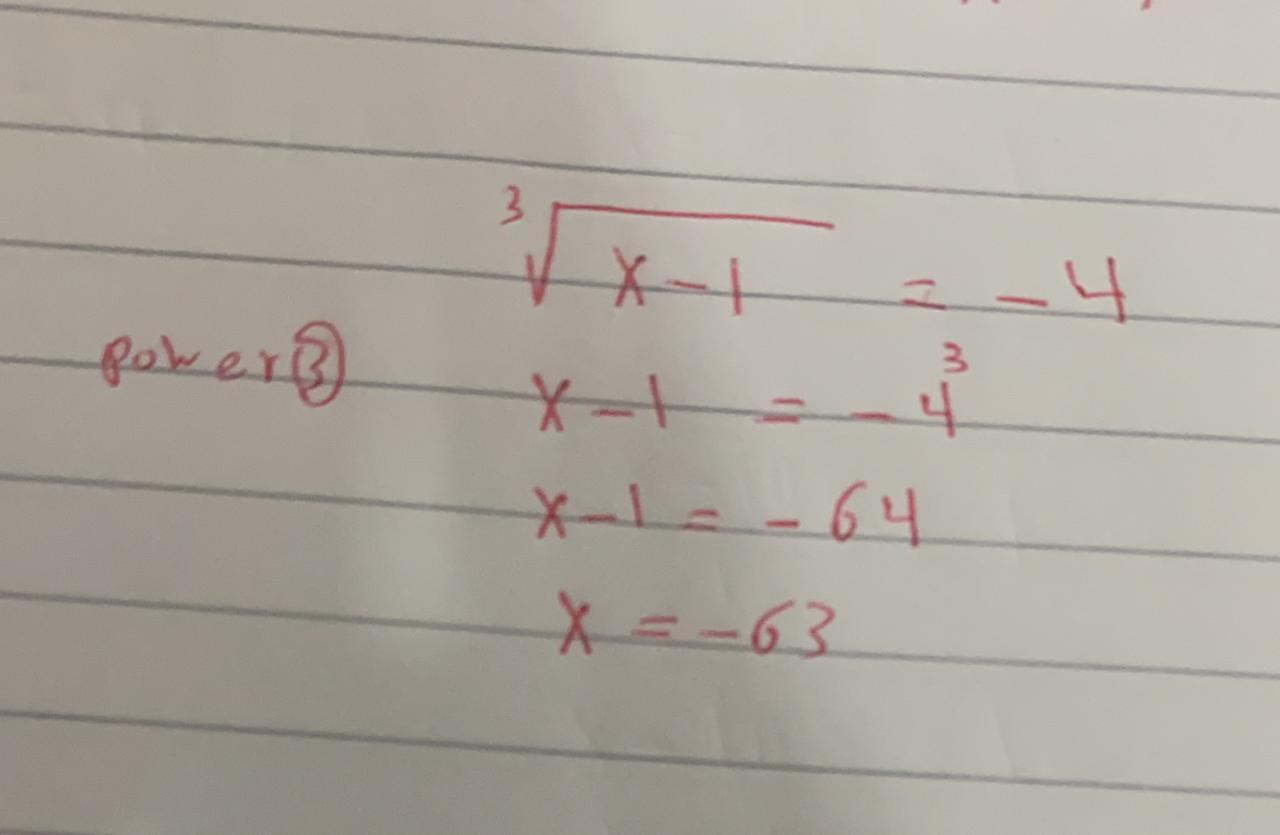 ∛(x-1) = -4
power③ x-1 = -4³
x-1 = -64
x = -63